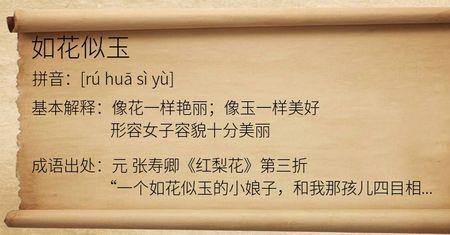 如花似玉
拼音：[rú huā sì yù]
基本解释：像花一样艳丽；像玉一样美好
形容女子容貌十分美丽
成语出处：元 张寿卿《红梨花》第三折
“一个如花似玉的小娘子，和我那孩儿四目相...